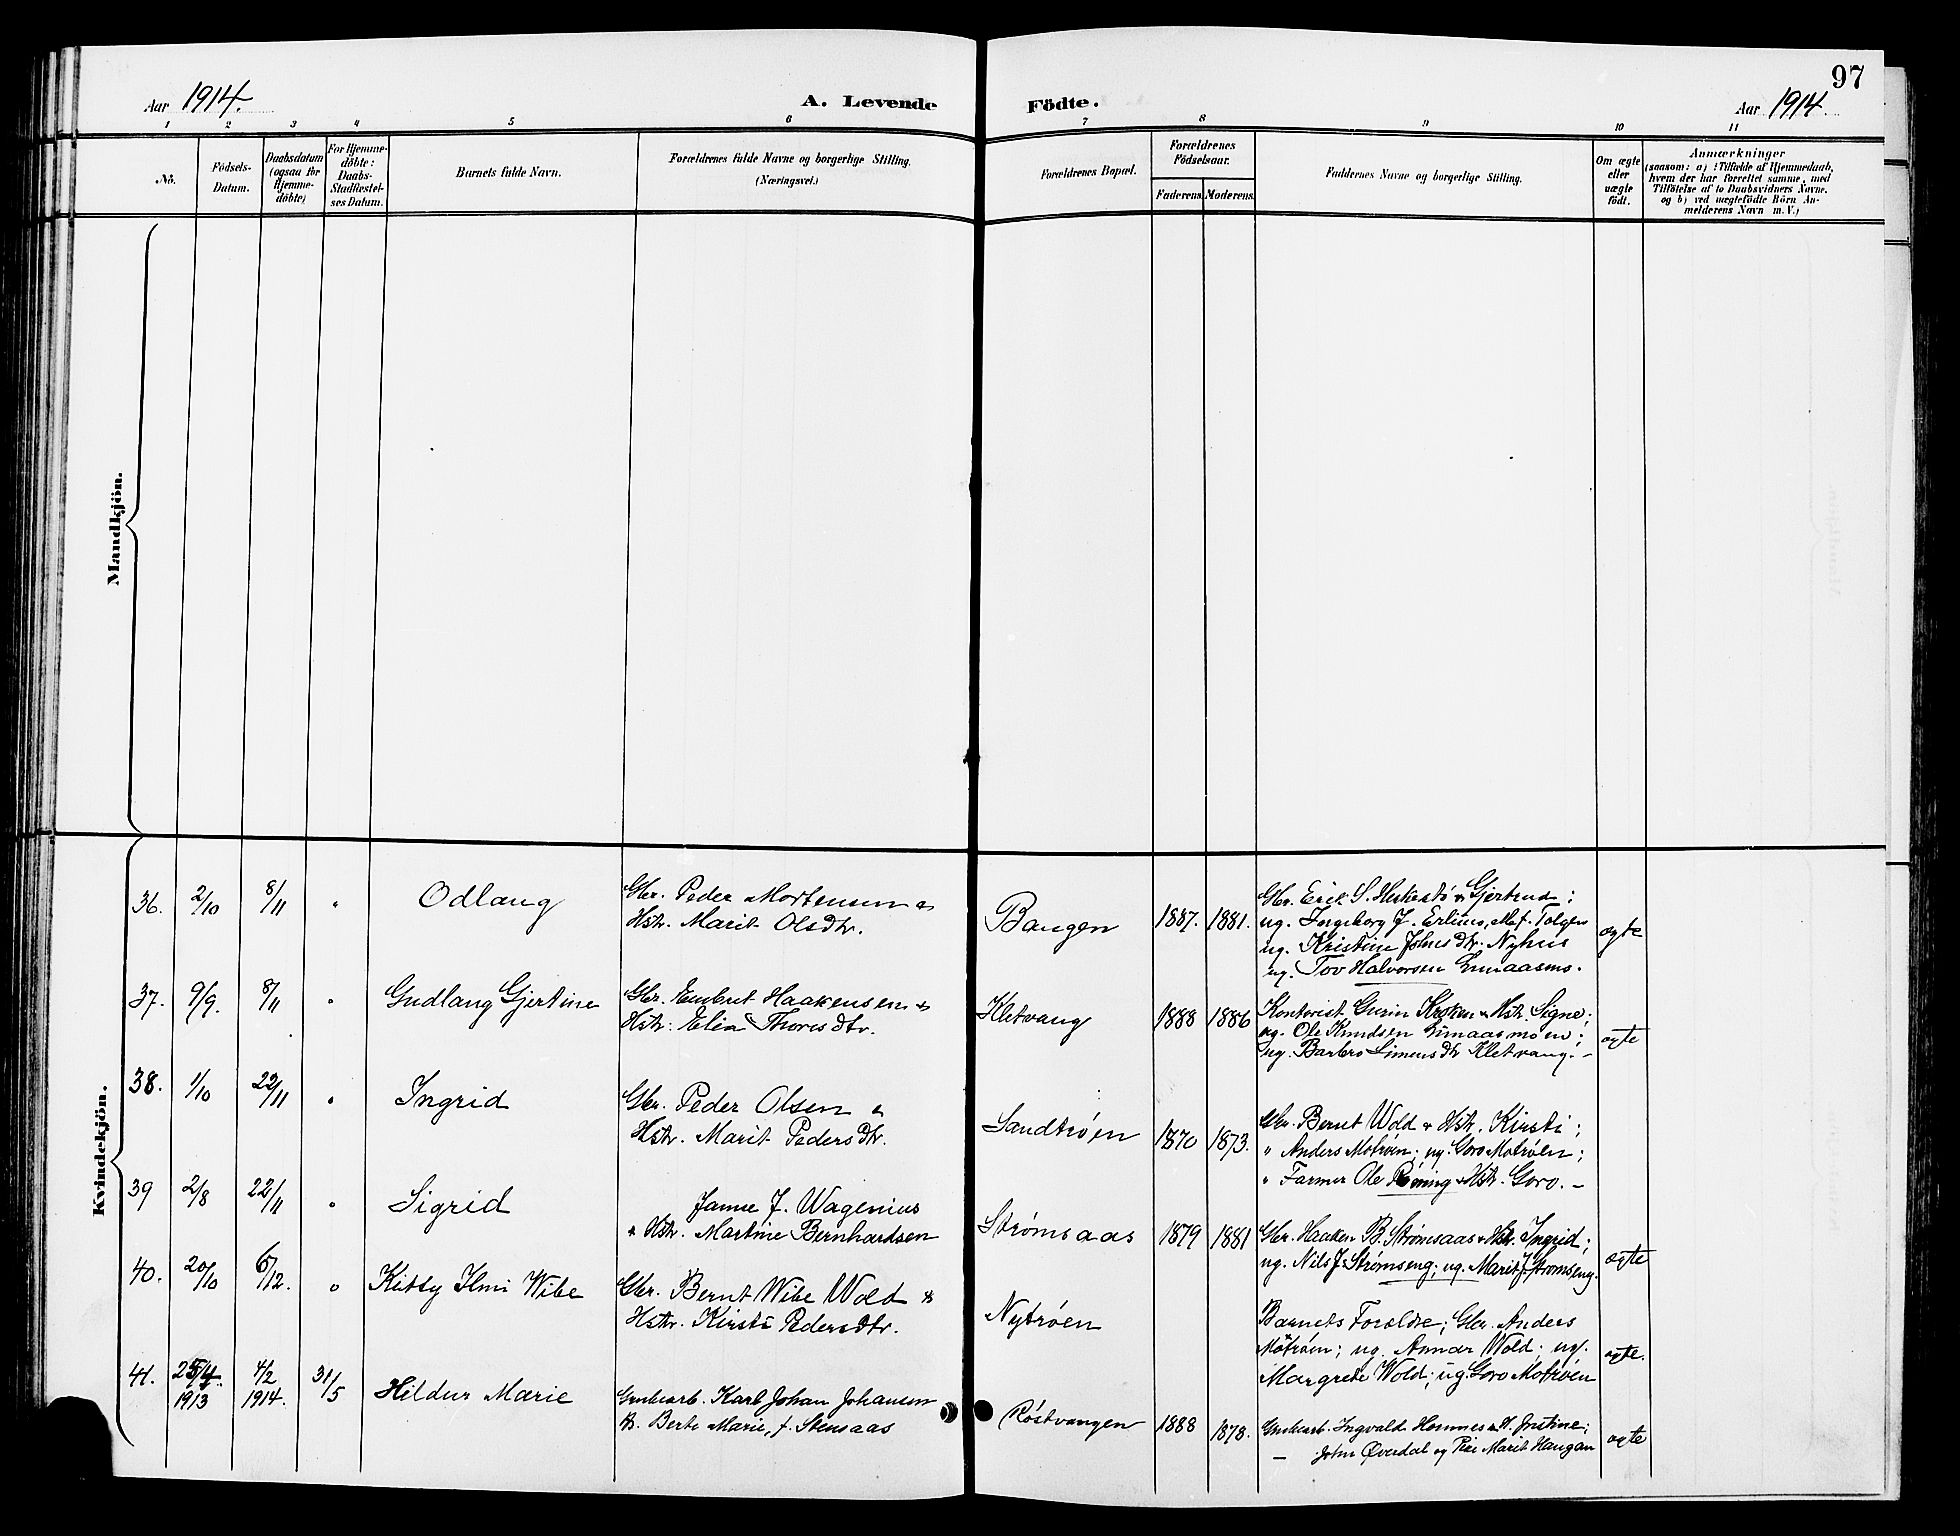 97
Aar 1914.
A. Levende
Födte.
Aar 1914
1 2 3 4 5 6 7 8 9 10 11
No.
Födsels-
Datum.
Daabsdatum
(ogsaa for
Hjemme-
döbte)
For Hjemme-
döbte:
Daabs-
Stadfæstel-
ses Datum.
Barnets fulde Navn.
Forældrenes fulde Navne og borgerlige Stilling.
(Næringsvei.)
Forældrenes Bopæl.
Forældrenes
Födselsaar.
Faderens
Moderens.
Faddernes Navne og borgerlige Stilling.
Om ægte
eller
uægte
födt.
Anmærkninger
(saasom: a) i Tilfælde af Hjemmedaab,
hvem der har forrettet samme, med
Tilföielse af to Daabsvidners Navne.
og b) ved uægtefödte Börn An-
melderens Navn m. V.)
Mandkjön.
Kvindekjön.
36. 2/10 8/11 " Odlaug
Gbr. Peder Mortensen &
Hstr. Marit Olsdtr.
Bangen 1887. 1881.
Gbr. Erik S. & Gjertrud;
ug. Ingeborg J. Erlien, Tolgen
ug. Kristine Johnsdtr. Nyhus
ug. Tov Halvorsen
ægte
37. 9/9. 8/11 " Gudlaug Gjertine
Gbr. Embret Haakensen &
Hstr. Elin Thoresdtr.
Kletvang 1888 1886
Kontorist & Hstr. Signe;
ug. Ole Knudsen
ug. Barbro Simensdtr Kletvang. -
ægte
38. 1/10 22/11 " Ingrid
Gbr. Peder Olsen &
Hstr. Marit Pedersdtr.
Sandtrøen 1870 1873.
Gbr. Bernt Wold & Hstr. Kirsti;
" Anders Motrøen; ug. Goro Motrøen;
" Farmer Ole Røning & Hstr. Goro. -
39 2/8 22/11 " Sigrid
Janne J. Wagenius
& Hstr. Martine Bernhardsen
Strømsaas 1879 1881
Gbr. Haaken B. Strømsaas & Hstr. Ingrid;
ug. Nils J. Strømseng; ug. Marit J. Strømseng.
ægte
40. 20/10 6/12. " Kitty Ilmi Wibe
Gbr. Bernt Wibe Wold &
Hstr. Kirsti Pedersdtr.
Nytrøen
Barnets Forældre; Gbr. Anders
Motrøen; ug. Annar Wold; ug.
Margrete Wold; ug. Goro Motrøen
ægte.
41. 25/4. 1913 4/2 1914. 31/5 Hildur Marie
Grubearb. Karl Johan Johansen
H. Berte Marie, f. Stensaas
Røstvangen 1888 1878.
Grubearb. Ingvald Hommes & H. Justine;
- John Øverdal og Marit Haugan
ægte